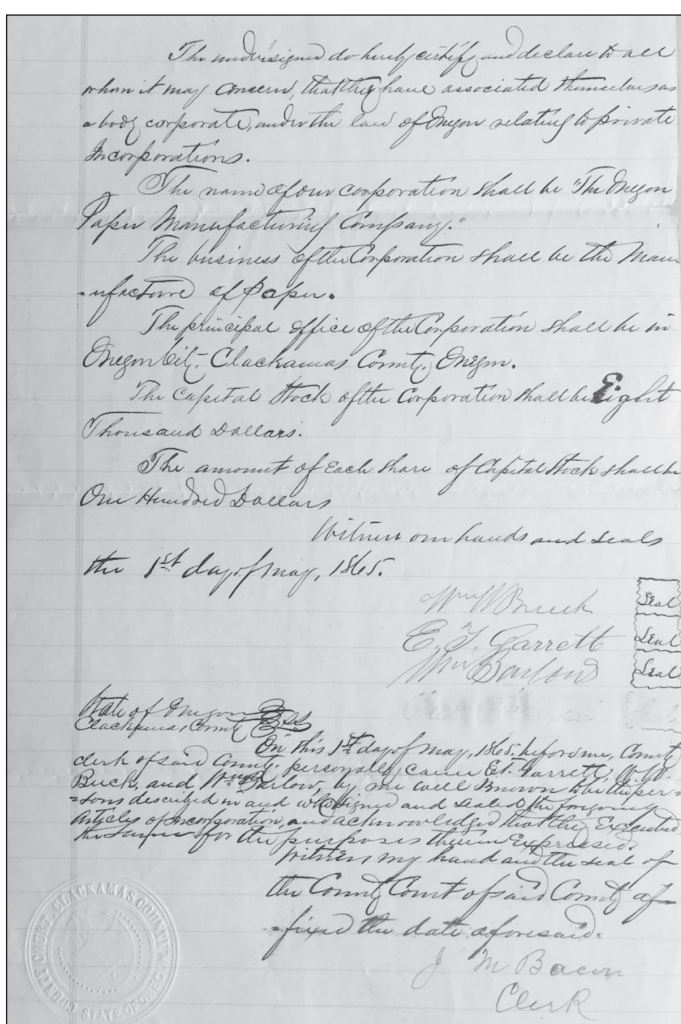 The undersigned do hereby certify and declare to all
whom it may concern, that they have associated themselves as
a body corporate, under the law of Oregon relating to private
Incorporations.
The name of our corporation shall be "The Oregon
Paper Manufacturing Company."
The business of the Corporation shall be the Man-
-ufacture of Paper.
The principal office of the Corporation shall be in
Oregon City, Clackamas County, Oregon.
The Capital Stock of the Corporation shall be Eight
Thousand Dollars.
The amount of Each share of Capital Stock shall be
One Hundred Dollars
Witness our hands and seals
the 1st day of May, 1865.
Wm W Buck Seal
E. T. Garrett Seal
Wm Barlow Seal
State of Oregon
Clackamas County SS
On this 1st day of May, 1865, before me, County
clerk of said County, personally came E.T. Garrett, W. W.
Buck, and Wm Barlow, by me well known to be the per-
-sons described in and who signed and sealed the foregoing
Articles of Incorporation, and acknowledged that they Executed
the same for the purposes therein Expressed.
Witness my hand and the seal of
the County Court of said County af-
-fixed the date aforesaid.
J M Bacon
Clerk
COUNTY COURT, CLACKAMAS COUNTY
STATE OF OREGON